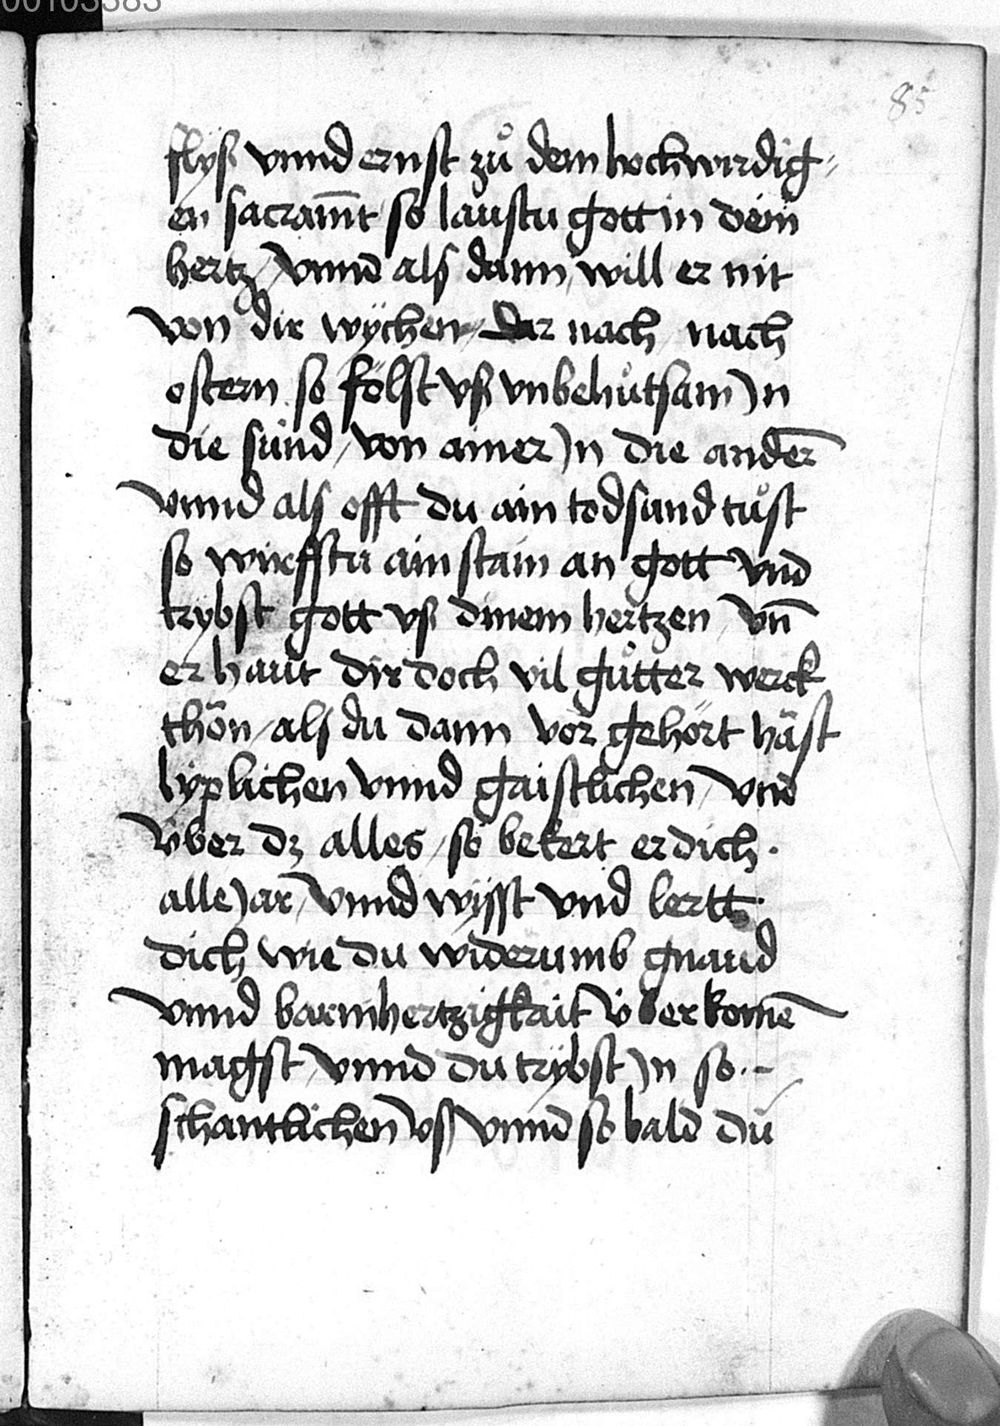 00103383
85
flyß vnnd ernst zů dem hochwirdig⸗
en sacramt̄ so laustu gott in dein
hertz / vnnd als dann will er nit
von dir wÿchen / dar nach / nach
ostern so fölst vß vnbehůtsam Jn
die sünd / von ainer Jn die ander̄
vnnd als offt du ain todsünd tůst
so wirffstu ain stain an gott vnd
trybst gott vß dinem hertzen / vn̄
er haut dir doch vil gůtter werck
thön / als du dann vor gehört häst
lyplichen vnnd gaistlichen / vnd
v̈ber dz alles / so bekert er dich .
alle Jar / vnnd wÿsst vnd lertt
dich wie du widerumb gnaud
vnnd barmhertzigkait v̈berkomē
magst / vnnd du trÿbst Jn so .-
schantlichen vß vnnd so bald du